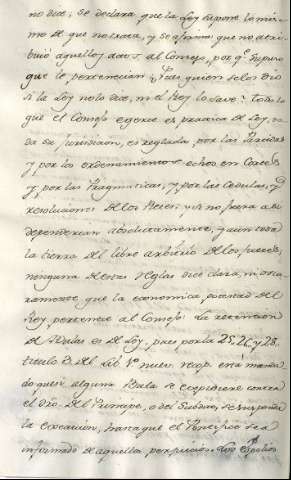 no dice, se declara que la Ley supone lo mis-
mo de que no trata, y se afirma que no atri-
buió aquellos dros al Consejo, por q.e supuso
que le pertenecian: Pues quien se los dio
si la Ley no lo dice, ni el Rey lo save? todo lo
que el Consejo egerce es practica de Ley, to-
da su jurisdicion, es reglada, por las Partidas
y por los ordenamientos echos en Cortes
y por las Pragmaticas, y por las Cedulas, y
resoluciones de los Reies, y si no fuera asi
dependerian absolutamente, y aun toda
la tierra del libre arbitrio de los Jueces,
ninguna de estas Reglas dice clara, ni oscu-
ramente que la economica potestad del
Rey, pertenece al Consejo. La retencion
de Bulas es de Ley, pues por la 25, 26, y 28
titulo 3. del Lib. 1.º nuev. recop. está manda-
do, que si alguna Bula se expidiere contra
el dro. del Principe, o del Subdito, se suspenda
la execucion, hasta que el Pontifice sea
informado de aquellos perjuicios. Los Espolios